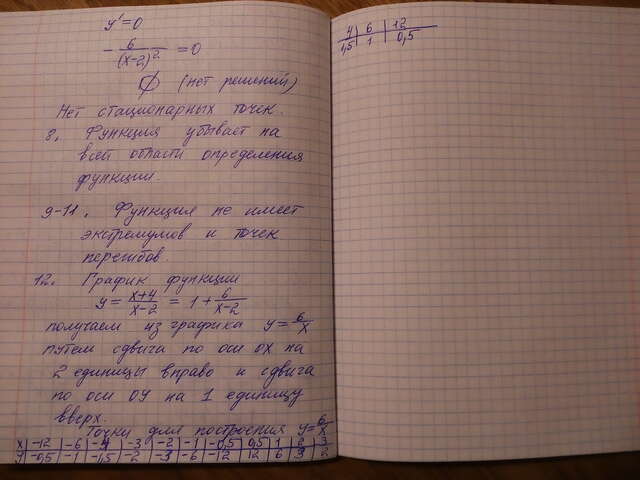 y' = 0
- 6/(x-2)² = 0
∅ (нет решений)
Нет стационарных точек.
8. Функция убывает на
всей области определения
функции.
9-11. Функция не имеет
экстремумов и точек
перегибов.
12. График функции
y = x+4/x-2 = 1 + 6/x-2
получаем из графика y = 6/x
путем сдвига по оси OX на
2 единицы вправо и сдвига
по оси OY на 1 единицу
вверх.
Точки для построения y = 6/x
x | -12 | -6 | -4 | -3 | -2 | -1 | -0,5 | 0,5 | 1 | 2 | 3
y | -0,5 | -1 | -1,5 | -2 | -3 | -6 | -12 | 12 | 6 | 3 | 2
4 | 6 | 12
1,5 | 1 | 0,5